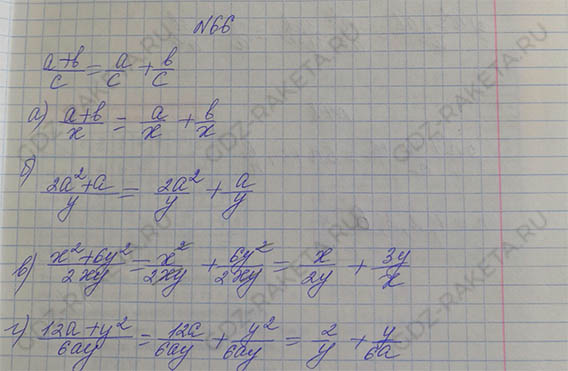 №66
(a+b)/c = a/c + b/c
а) (a+b)/x = a/x + b/x
б) (2a²+a)/y = 2a²/y + a/y
в) (x²+6y²)/2xy = x²/2xy + 6y²/2xy = x/2y + 3y/x
г) (12a+y²)/6ay = 12a/6ay + y²/6ay = 2/y + y/6a
GDZ-RAKETA.RU
GDZ-RAKETA.RU
GDZ-RAKETA.RU
GDZ-RAKETA.RU
GDZ-RAKETA.RU
GDZ-RAKETA.RU